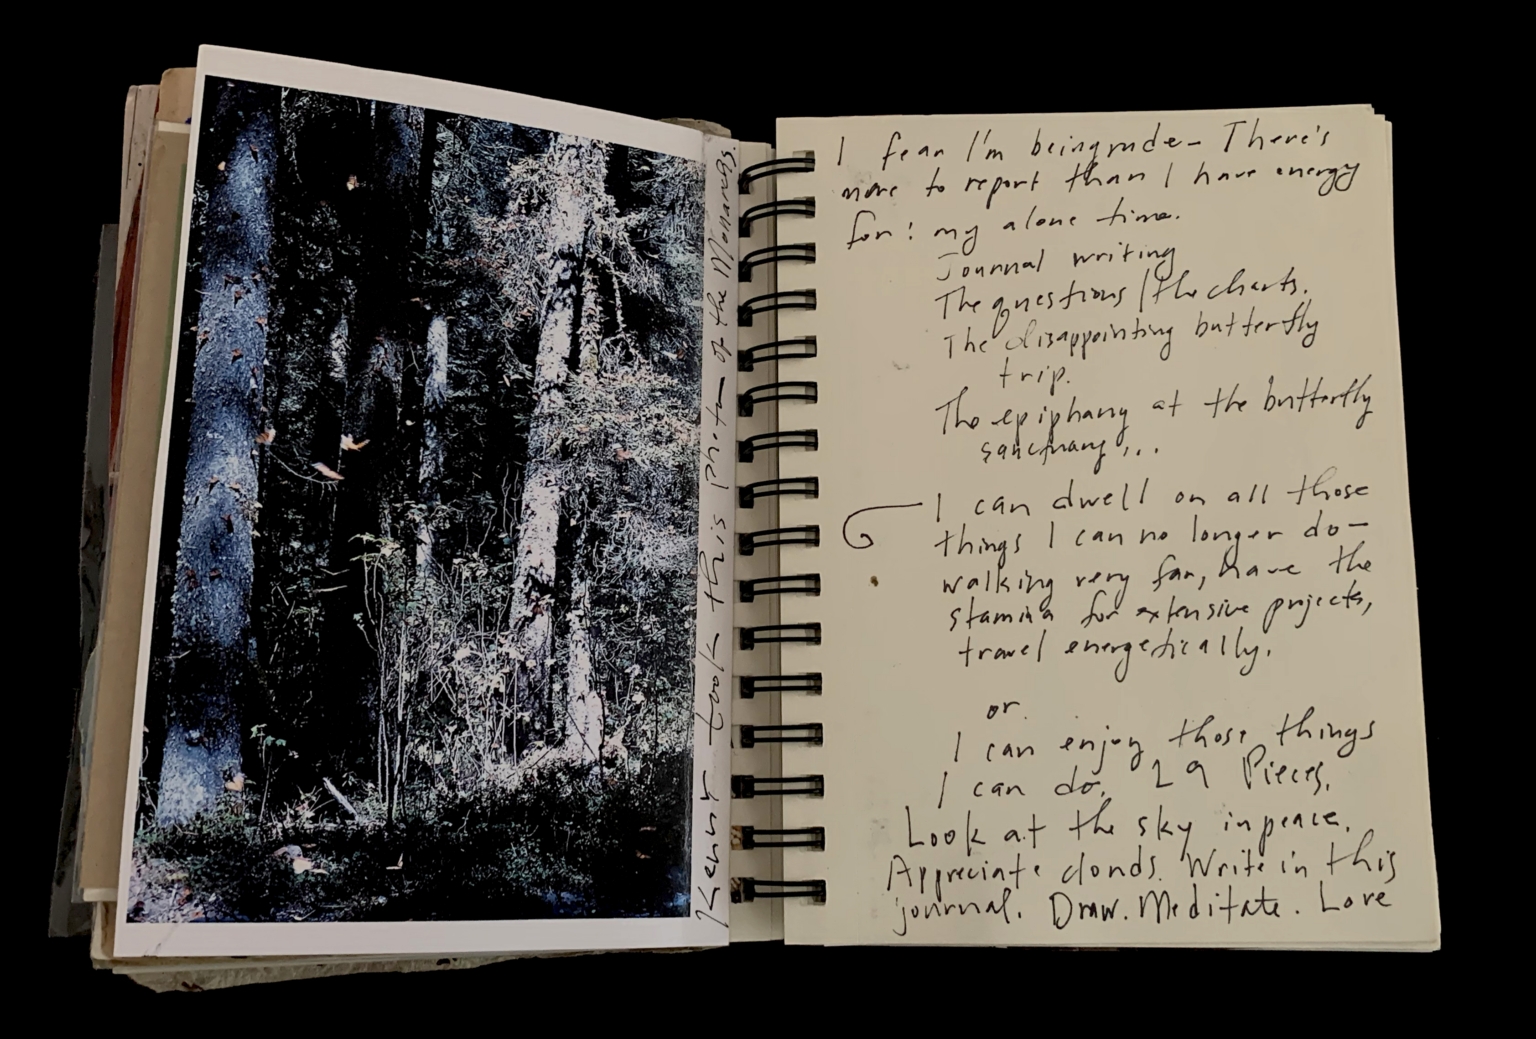 Kenny took this photo of the Monarchs.
I fear I'm being rude – There's
more to report than I have energy
for: my alone time.
Journal writing
The questions/the charts.
The disappointing butterfly
trip.
The epiphany at the butterfly
sanctuary...
I can dwell on all those
things I can no longer do –
walking very far, have the
stamina for extensive projects,
travel energetically.
or
I can enjoy those things
I can do. 29 Pieces.
Look at the sky in peace.
Appreciate clouds. Write in this
journal. Draw. Meditate. Love